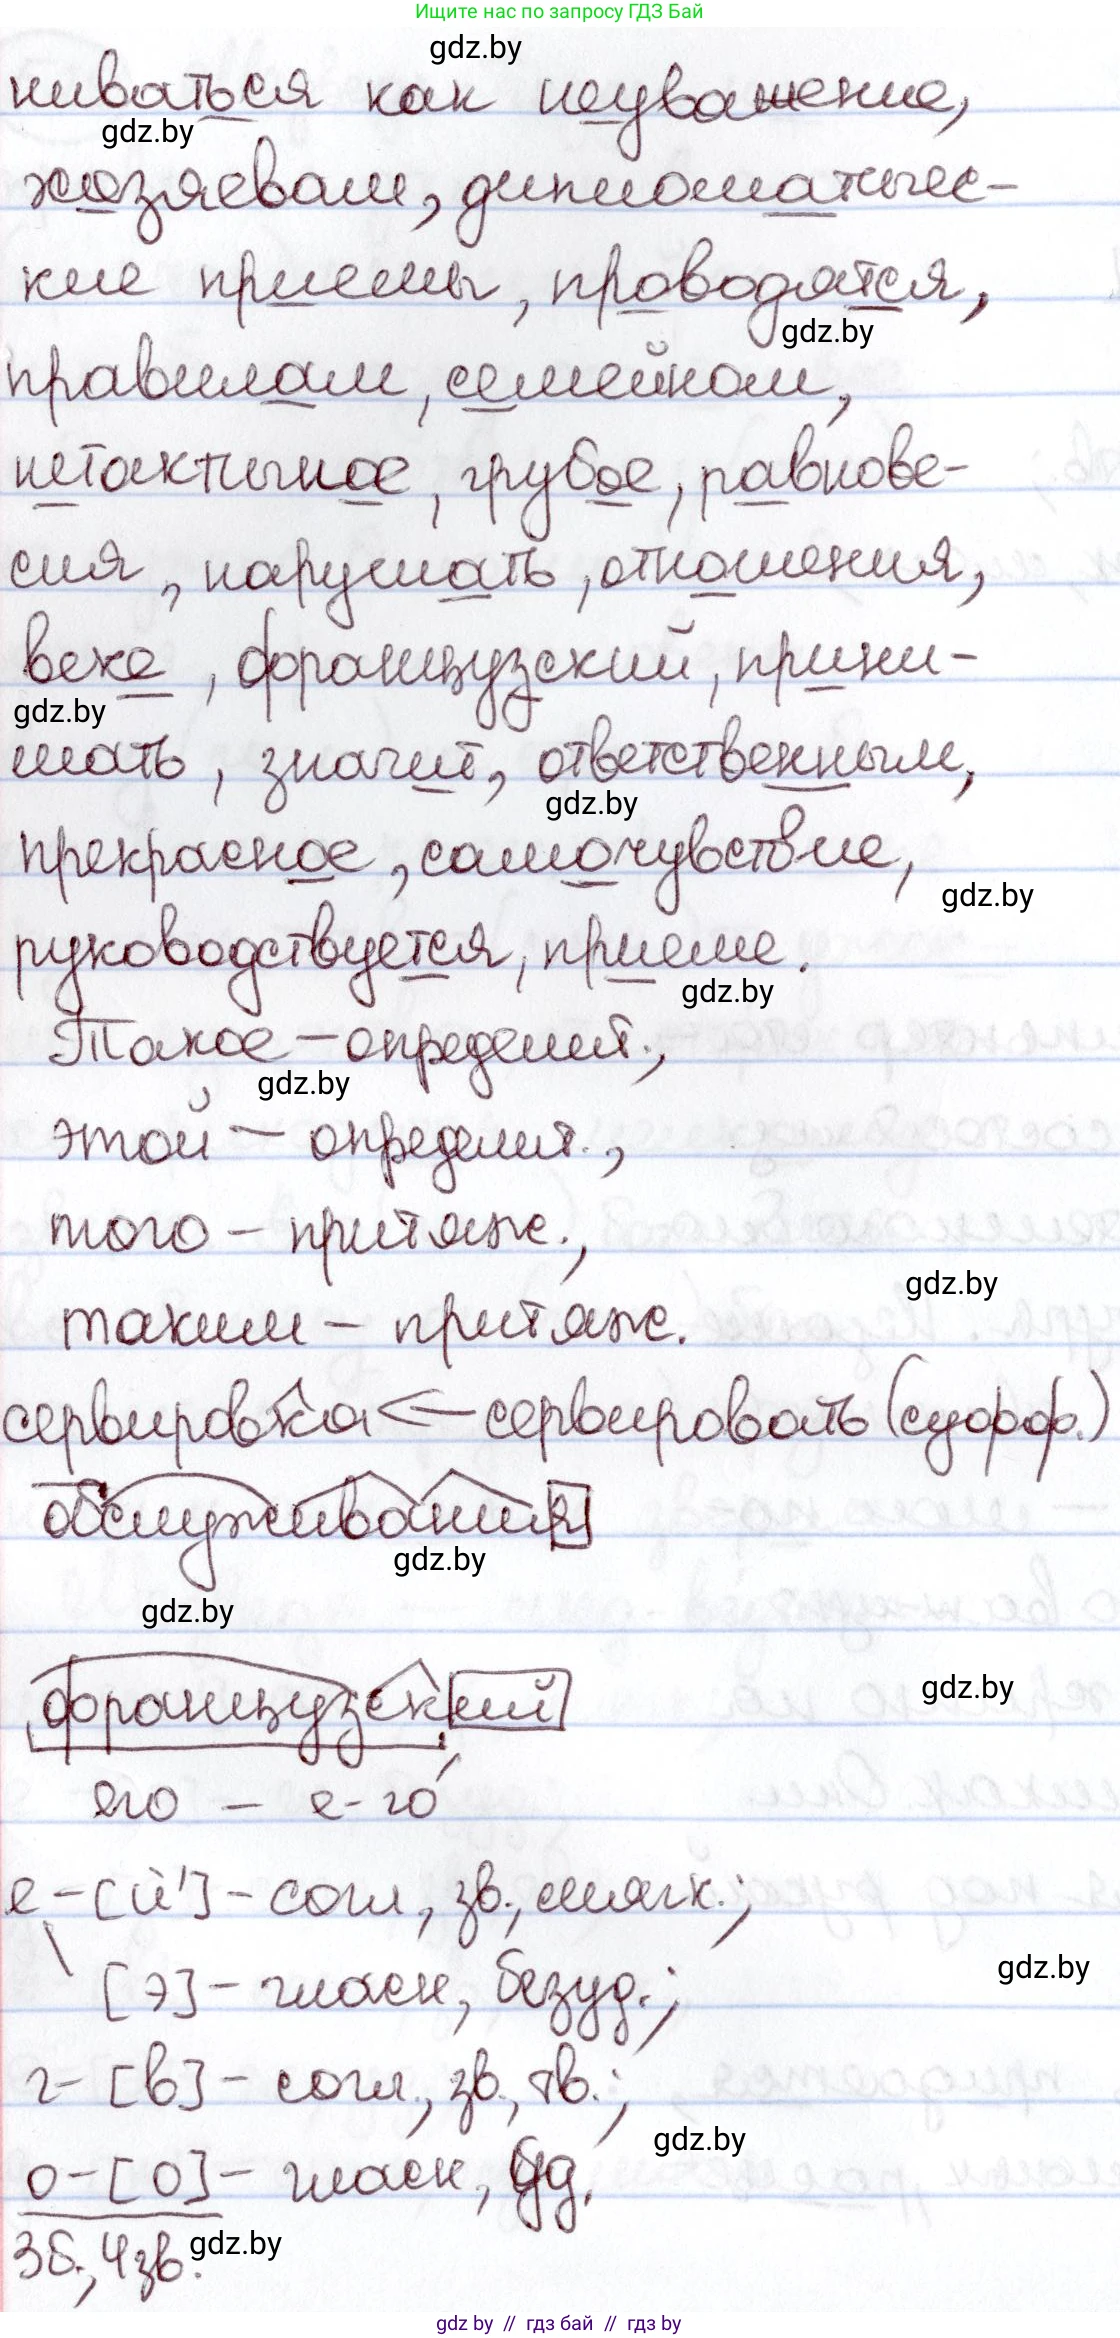 Ищите нас по запросу ГДЗ Бай
gdz.by
ниваться как неуважение,
gdz.by
хозяевам, дипломатичес-
кие приемы, проводятся,
gdz.by
правилам, семейном,
нетактичное, грубое, равнове-
сия, нарушать, отношения,
веке, французский, прини-
gdz.by
мать, значит, ответственным,
gdz.by
прекрасное, самочувствие,
gdz.by
руководствуется, приеме.
gdz.by
Такое – определит.,
gdz.by
этой – определит.,
того – притяж.,
gdz.by
таким – притяж.
сервировка ← сервировать (суфф.)
обслуживания
gdz.by
gdz.by
французский
gdz.by
его – е-го́
е – [й'] – согл., зв., мягк.;
[э] – гласн, безуд.;
gdz.by
г – [в] – согл., зв., тв.;
gdz.by
о – [о] – гласн, уд.
3б., 4зв.
gdz.by
gdz by // гдз бай // gdz by